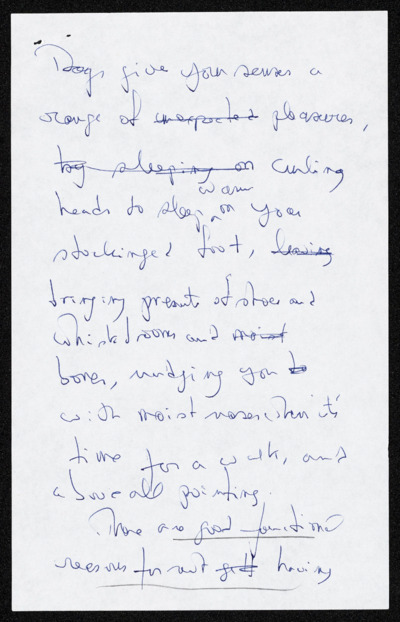 Dogs give your senses a
range of unexpected pleasures,
by sleeping on curling
heads to sleep warm on your
stockinged foot, leaving
bringing presents of shoes and
whiskbrooms and moist
bones, nudging you to
with moist noses when it's
time for a walk, and
above all pointing.
There are good functional
reasons for not gett having